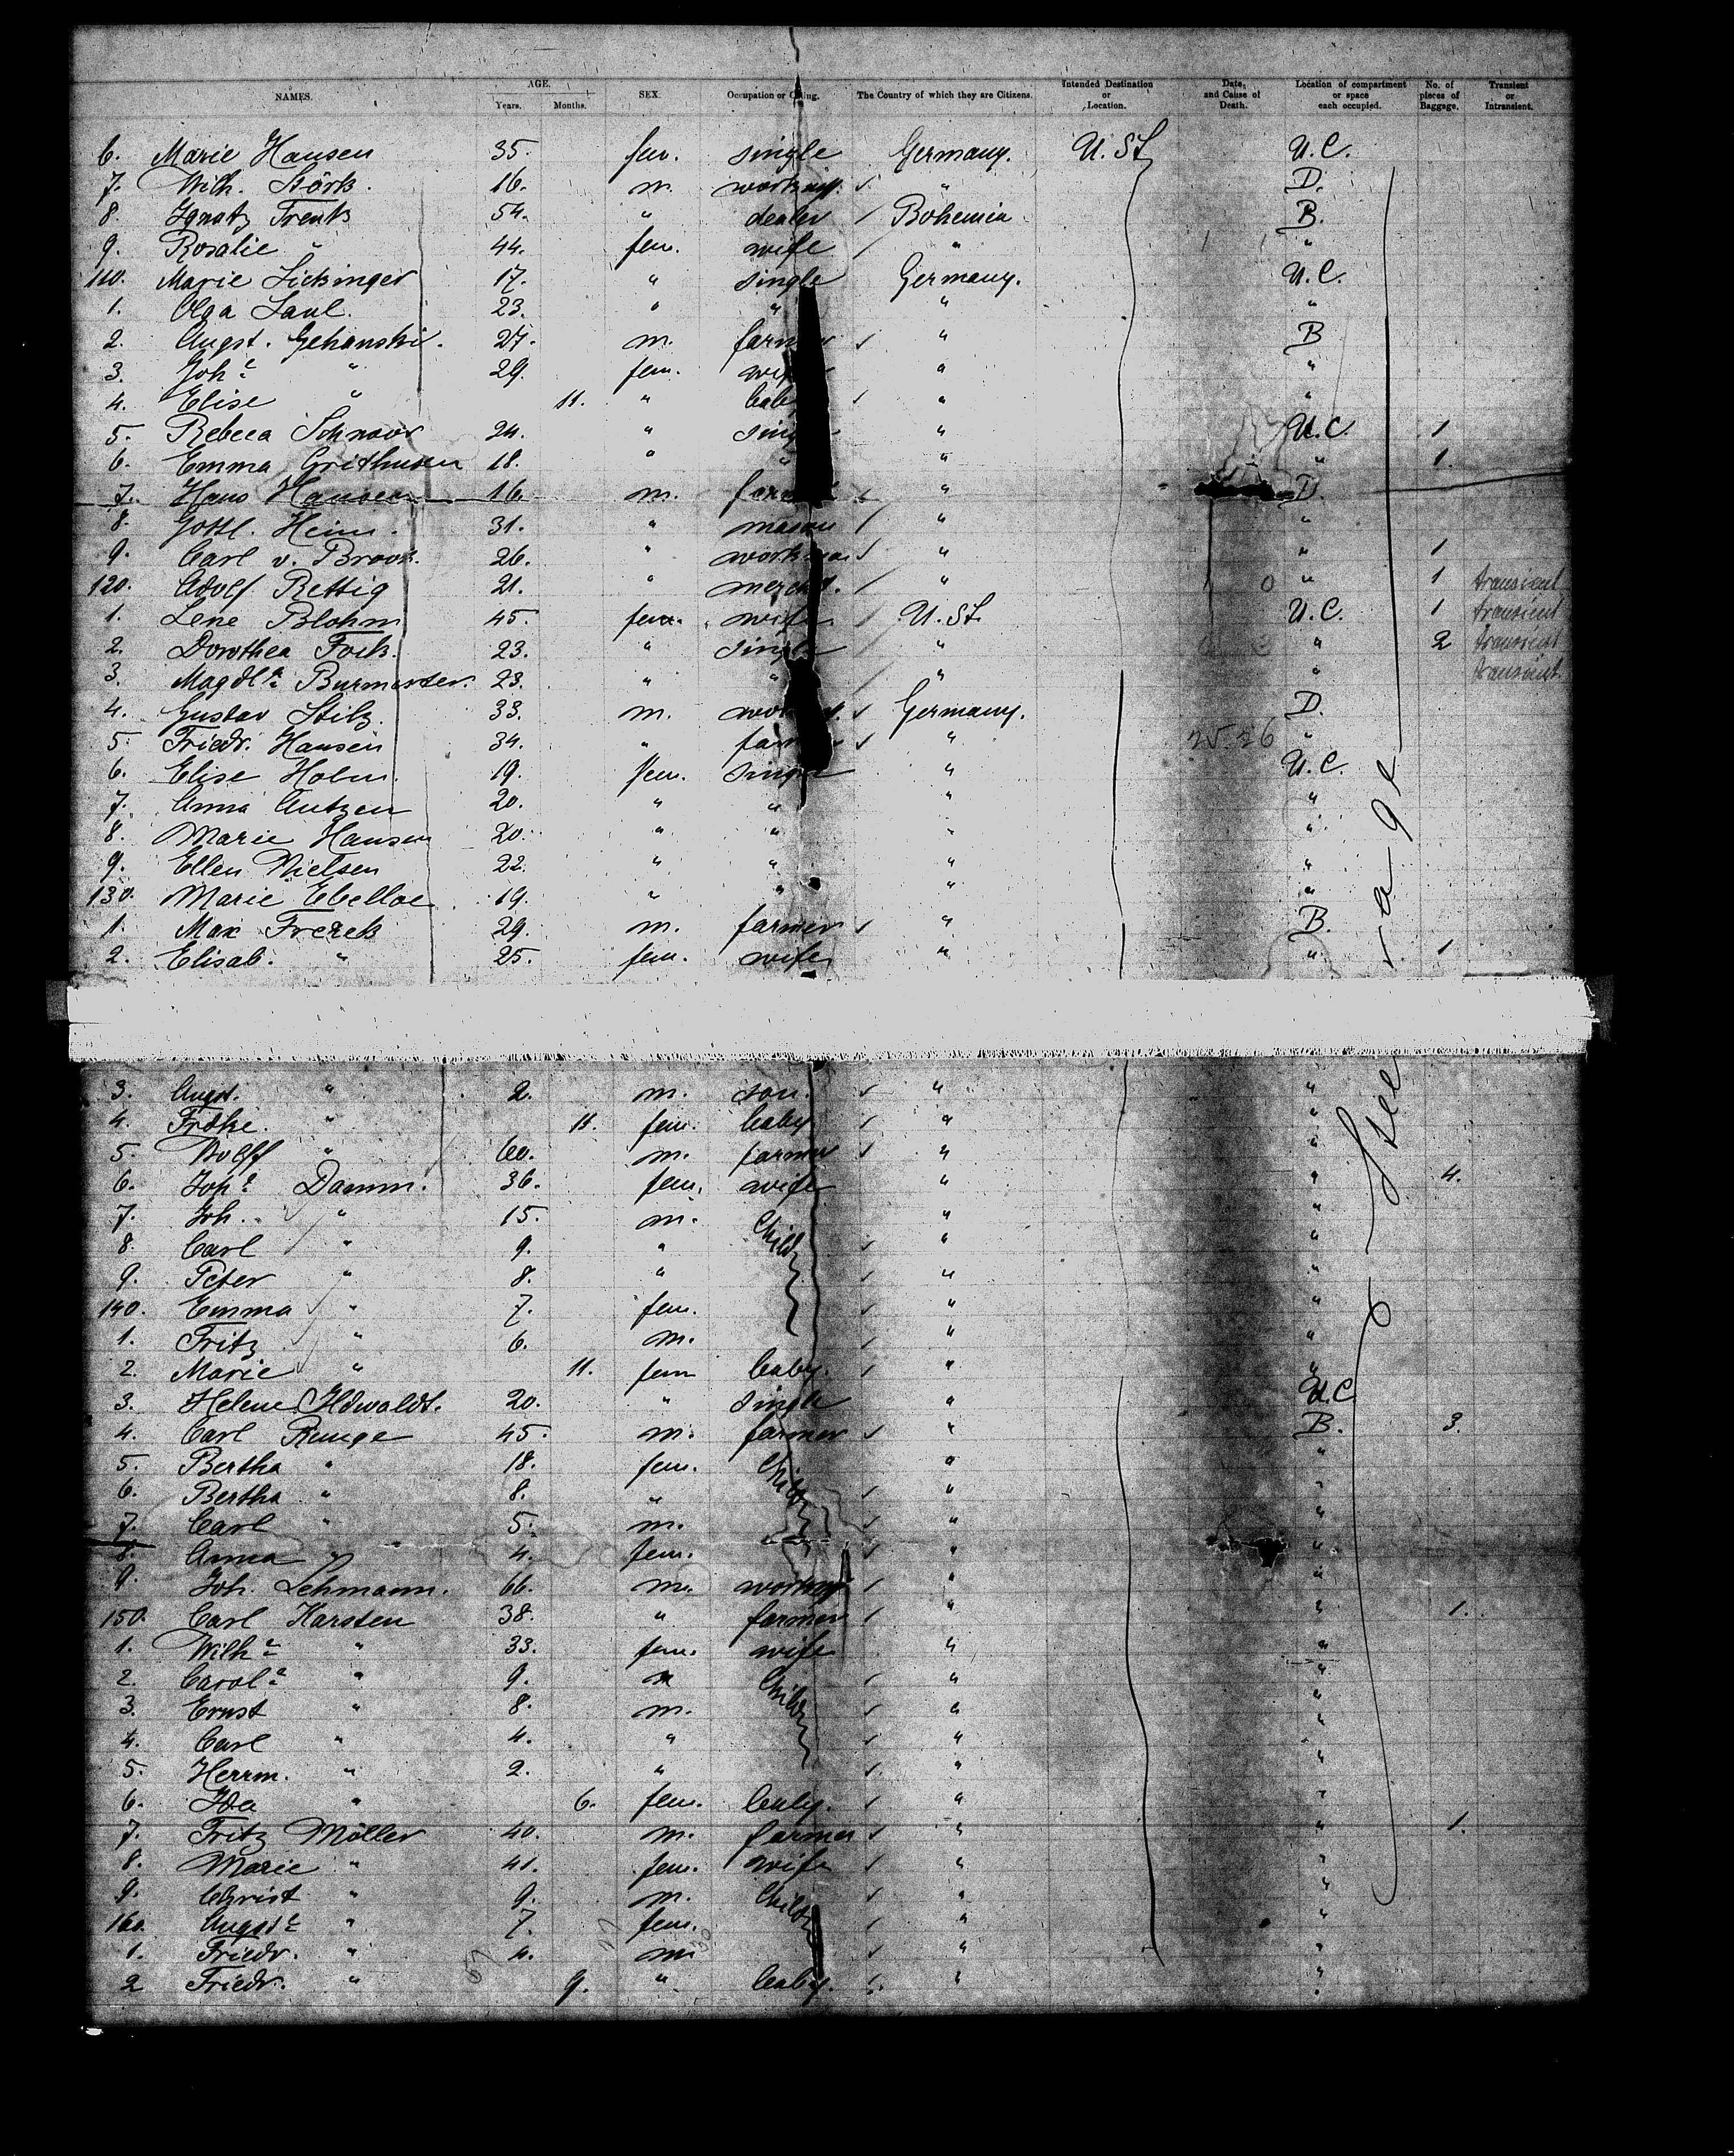 NAMES. AGE. Years. Months. SEX. Occupation or Calling. The Country of which they are Citizens. Intended Destination or Location. Date, and Cause of Death. Location of compartment or space each occupied. No. of pieces of Baggage. Transient or Intransient.
6. Marie Hansen 35. fem. single Germany. U. St. U.C.
7. Wilh. Störk. 16. m. " D.
8. Ignatz Trenk 54. " dealer Bohemia B.
9. Rosalie " 44. fem. wife " "
110. Marie Lickinger 17. " single Germany. U.C.
1. Olga Saul. 23. " " " "
2. Augst. Gehanski. 27. m. farmer " B
3. Joh.ª " 29. fem. wife " "
4. Elise " 11. " baby " "
5. Rebeca Schnoor 24. " single " U.C. 1
6. Emma Grithusen 18. " " " " 1.
7. Hans Hansen 16. m. " D.
8. Gottl. Heim. 31. " mason " "
9. Carl v. Brook. 26. " workman " " 1
120. Adolf Rettig 21. " " " 1 transient
1. Lene Blohm 45. fem. wife U. St. U.C. 1 transient
2. Dorothea Fock. 23. " single " " 2 transient
3. Magdl.ª Burmester. 23. " " " " transient
4. Gustav Stilz. 33. m. Germany. D.
5. Friedr. Hansen 34. " farmer " "
6. Elise Holm. 19. fem. single " U.C.
7. Anna Autzen 20. " " " "
8. Marie Hansen 20. " " " "
9. Ellen Nielsen 22. " " " "
130. Marie Ebelloe 19. " " " "
1. Max Frerck 29. m. farmer " B.
2. Elisab. " 25. fem. wife " " 1
3. Augst. " 2. m. son. " "
4. " 11. fem. baby " "
5. Wolff " 60. m. farmer " "
6. Joh.ª Damm. 36. fem. wife " " 4.
7. Joh. " 15. m. Child " "
8. Carl " 9. " " "
9. Peter " 8. " " "
140. Emma " 7. fem. " "
1. Fritz " 6. m. " "
2. Marie " 11. fem baby. " "
3. Helene 20. " single " U.C.
4. Carl Runge 45. m. farmer " B. 3.
5. Bertha " 18. fem. Child " "
6. Bertha " 8. " " "
7. Carl " 5. m. " "
8. Anna " 4. fem. " "
9. Joh. Lehmann. 66. m. " "
150. Carl Karsten 38. " farmer " " 1.
1. Wilh.ª " 33. fem. wife " "
2. Carol.ª " 9. " Child " "
3. Ernst " 8. m. " "
4. Carl " 4. " " "
5. Herrm. " 2. " " "
6. Ida " 6. fem. baby. " "
7. Fritz Möller 40. m. farmer " " 1.
8. Marie " 41. fem. wife " "
9. Christ " 9. m. Child " "
160. Augst.ª " 7. fem. " "
1. Friedr. " 4. m. " "
2 Friedr. " 9. " baby. " "
Steerage